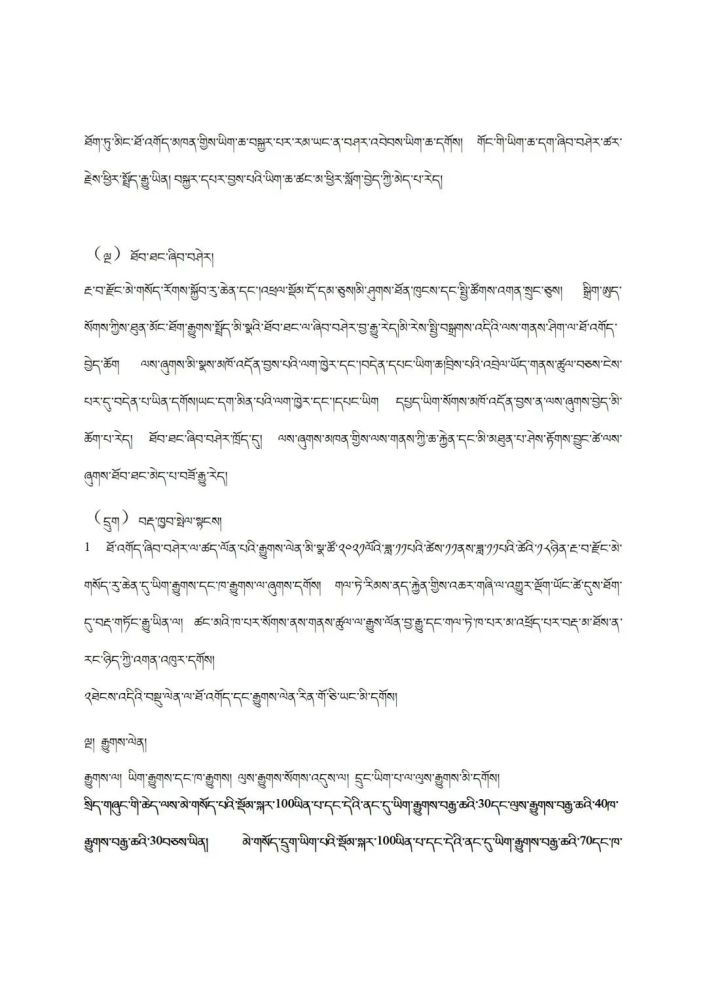 ཐོག་ཏུ་མིང་ཐོ་འགོད་མཁན་གྱིས་ཡིག་ཆ་བསྐྱར་པར་རམ་ཡང་ན་བཤར་འབེབས་ཡིག་ཆ་དགོས། གོང་གི་ཡིག་ཆ་དག་ཞིབ་བཤེར་ཚར་
རྗེས་ཕྱིར་སྤྲོད་རྒྱུ་ཡིན། བསྐྱར་དཔར་བྱས་པའི་ཡིག་ཆ་ཚང་མ་ཕྱིར་སློག་བྱེད་ཀྱི་མེད་པ་རེད།
（ལྔ） ཐོབ་ཐང་ཞིབ་བཤེར།
རྔ་བ་རྫོང་མེ་གསོད་རོགས་སྐྱོབ་རུ་ཆེན་དང་།འཕྲལ་སྡོམ་དོ་དམ་ཅུས།མི་ཤུགས་ཐོན་ཁུངས་དང་སྤྱི་ཚོགས་འགན་སྲུང་ཅུས། སྒྲིག་ཨུད་
སོགས་ཀྱིས་ཐུན་མོང་ཐོག་རྒྱུགས་སྤྲོད་མི་སྣའི་ཐོབ་ཐང་ལ་ཞིབ་བཤེར་བྱ་རྒྱུ་རེད།མི་རེས་སྤྱི་བསྒྲགས་འདིའི་ལས་གནས་ཤིག་ལ་ཐོ་འགོད་
བྱེད་ཆོག ལས་ཞུགས་མི་སྣས་མཁོ་འདོན་བྱས་པའི་ལག་ཁྱེར་དང་།བདེན་དཔང་ཡིག་ཆ།བྲིས་པའི་འབྲེལ་ཡོད་གནས་ཚུལ་བཅས་ངེས་
པར་དུ་བདེན་པ་ཡིན་དགོས།ཡང་དག་མིན་པའི་ལག་ཁྱེར་དང་།དཔང་ཡིག དཔྱད་ཡིག་སོགས་མཁོ་འདོན་བྱས་ན་ལས་ཞུགས་བྱེད་མི་
ཆོག་པ་རེད། ཐོབ་ཐང་ཞིབ་བཤེར་ཁྲོད་དུ། ལས་ཞུགས་མཁན་གྱིས་ལས་གནས་ཀྱི་ཆ་རྐྱེན་དང་མི་མཐུན་པ་ཤེས་རྟོགས་བྱུང་ཚེ་ལས་
ཞུགས་ཐོབ་ཐང་མེད་པ་བཟོ་རྒྱུ་རེད།
（དྲུག） བརྡ་ཁྱབ་སྤེལ་སྟངས།
1 ཐོ་འགོད་ཞིབ་བཤེར་ལ་ཚད་ལོན་པའི་རྒྱུགས་ལེན་མི་སྣ་ཚོ་༢༠༢༡ལོའི་ཟླ་༡༡པའི་ཚེས་༡༡ནས་ཟླ་༡༡པའི་ཚེའི་༡༨ཉིན་རྔ་བ་རྫོང་མེ་
གསོད་རུ་ཆེན་དུ་ཡིག་རྒྱུགས་དང་ཁ་རྒྱུགས་ལ་ཞུགས་དགོས། གལ་ཏེ་རིམས་ནད་རྐྱེན་གྱིས་འཆར་གཞི་ལ་འགྱུར་ལྡོག་ཡོང་ཚེ་དུས་ཐོག་
ཏུ་བརྡ་གཏོང་རྒྱུ་ཡིན་ལ། ཚང་མའི་ཁ་པར་སོགས་ནས་གནས་ཚུལ་ལ་རྒྱུས་ལོན་བྱ་རྒྱུ་དང་གལ་ཏེ་ཁ་པར་མ་འཕྲོད་པར་བརྡ་མ་ཐོས་ན་
རང་ཉིད་ཀྱི་འགན་འཁུར་དགོས།
༢ཐེངས་འདིའི་བསྡུ་ལེན་ལ་ཐོ་འགོད་དང་རྒྱུགས་ལེན་རིན་གོ་ཅི་ཡང་མི་དགོས།
ལྔ། རྒྱུགས་ལེན།
རྒྱུགས་ལ། ཡིག་རྒྱུགས་དང་ཁ་རྒྱུགས། ལུས་རྒྱུགས་སོགས་འདུས་ལ། དྲུང་ཡིག་པ་ལ་ལུས་རྒྱུགས་མི་དགོས།
སྲིད་གཞུང་གི་ཆེད་ལས་མེ་གསོད་པའི་སྡོམ་སྐར་100ཡིན་པ་དང་དེའི་ནང་དུ་ཡིག་རྒྱུགས་བརྒྱ་ཆའི་30དང་ལུས་རྒྱུགས་བརྒྱ་ཆའི་40ཁ་
རྒྱུགས་བརྒྱ་ཆའི་30བཅས་ཡིན། མེ་གསོད་དྲུག་ཡིག་པའི་སྡོམ་སྐར་100ཡིན་པ་དང་དེའི་ནང་དུ་ཡིག་རྒྱུགས་བརྒྱ་ཆའི་70དང་ཁ་